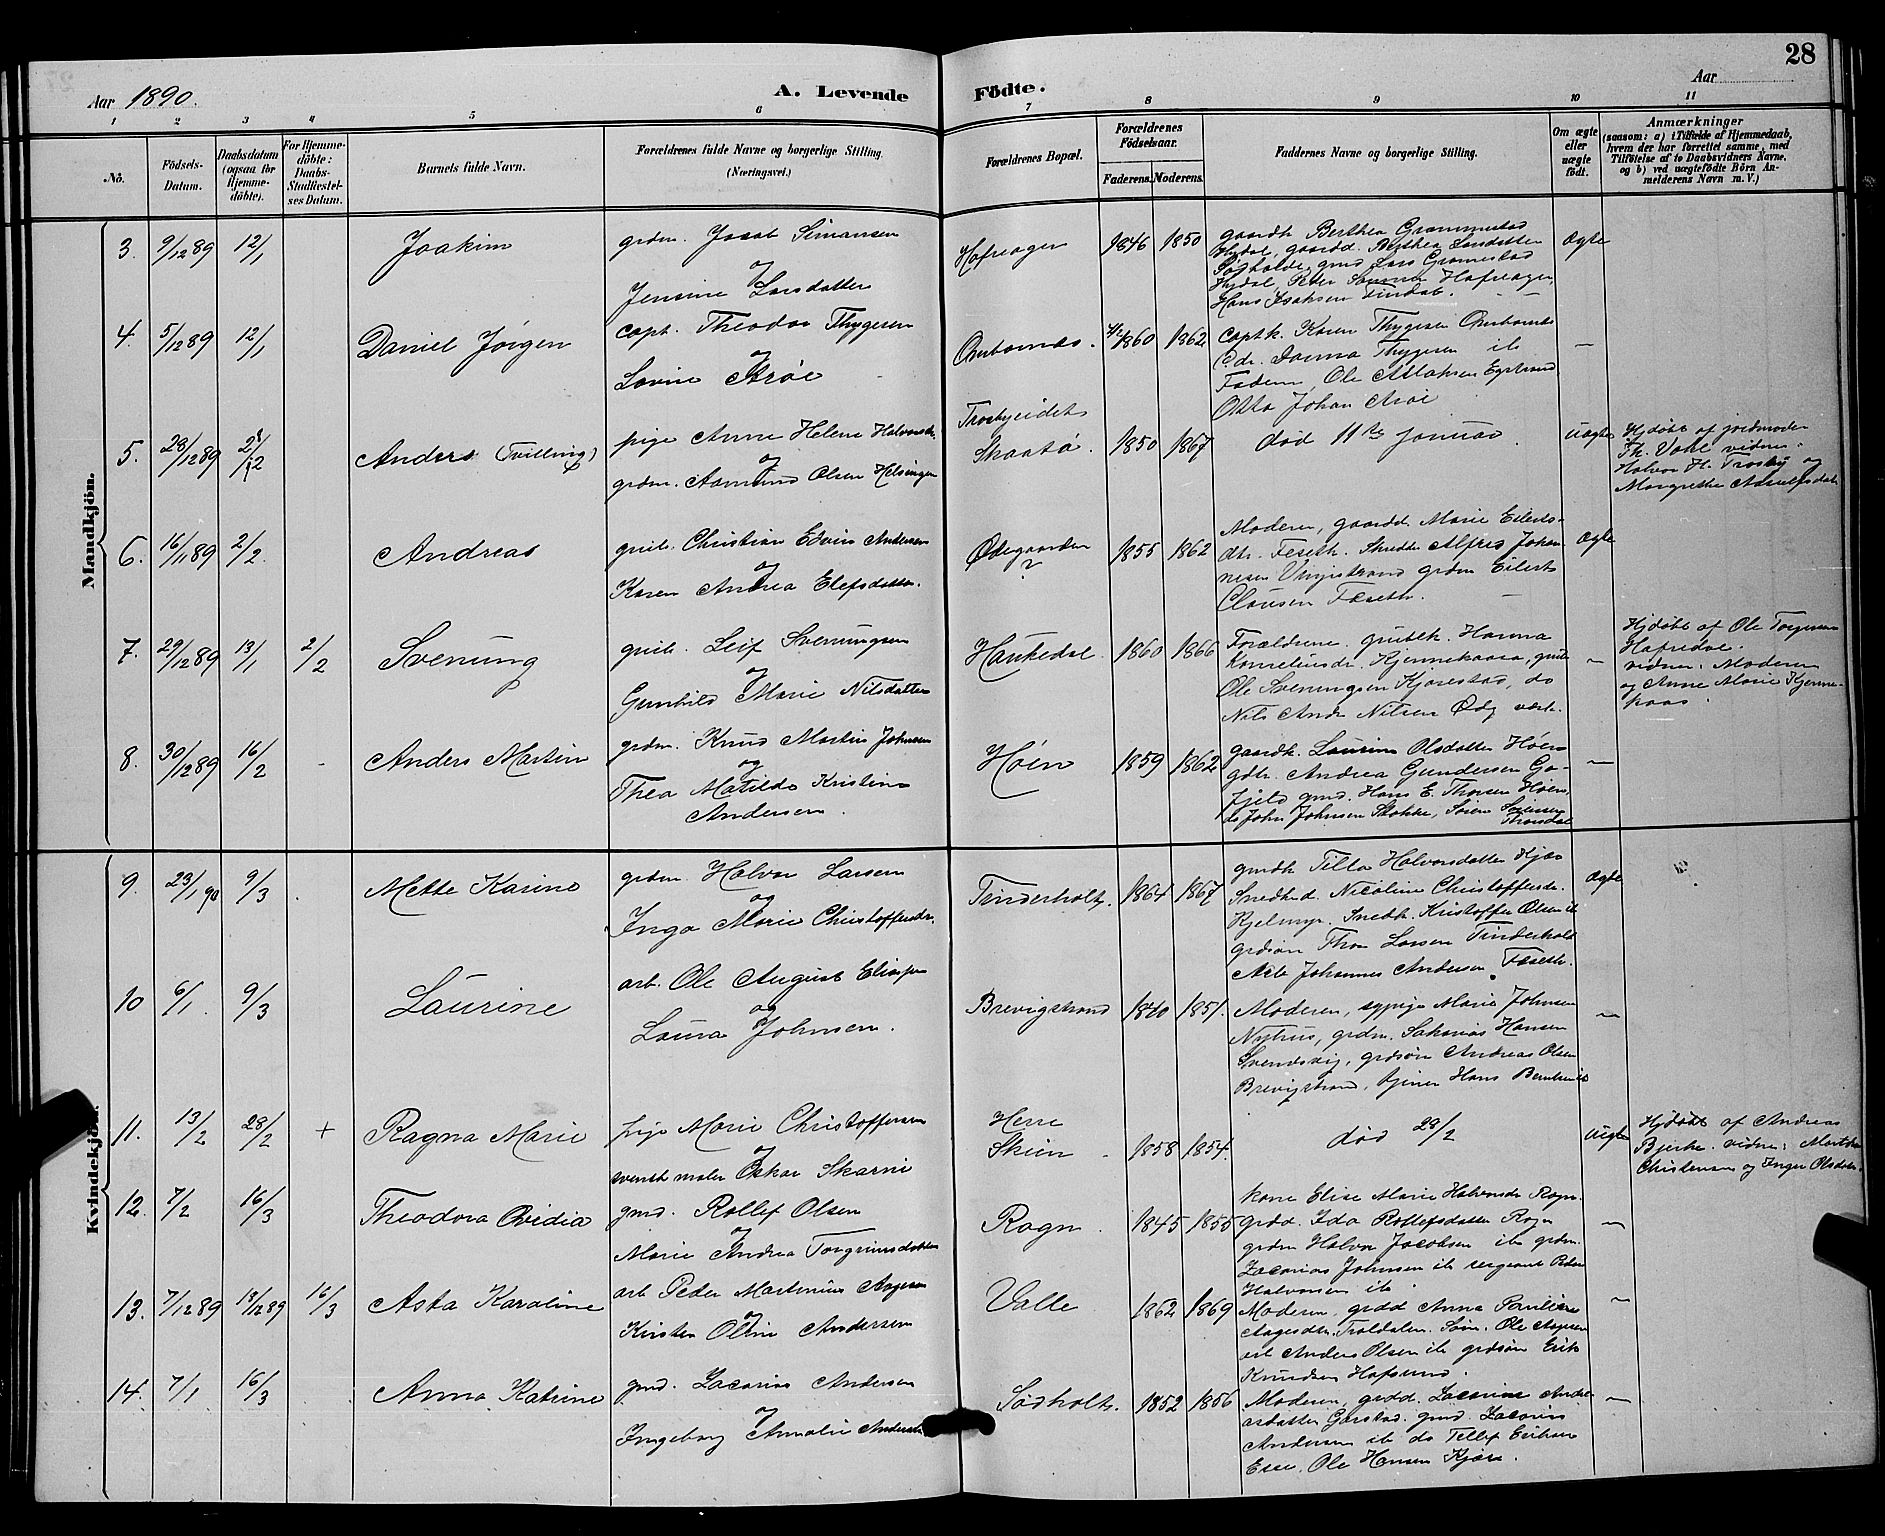 28
Aar 1890.
A. Levende
Födte.
Aar
1 2 3 4 5 6 7 8 9 10 11
No.
Födsels-
Datum.
Daabsdatum
(ogsaa for
Hjemme-
döbte).
For Hjemme-
döbte:
Daabs-
Stadfæstel-
ses Datum.
Barnets fulde Navn.
Forældrenes fulde Navne og borgerlige Stilling.
(Næringsvei.)
Forældrenes Bopæl.
Forældrenes
Födselsaar.
Faderens. Moderens.
Faddernes Navne og borgerlige Stilling.
Om ægte
eller
uægte
födt.
Anmærkninger
(saasom: a) i Tilfælde af Hjemmedaab,
hvem der har forrettet samme, med
Tilföielse af to Daabsvidners Navne,
og b) ved uægtefödte Börn An-
melderens Navn m. V.)
Mandkjön.
3. 9/12 89 12/1 Joakim
grdm. Jacob Simonsen
og
Jensine Larsdatter
Hafreager 1846 1850
gaardk Berthea Grammestad
Hydal, gaardd. Berthea Larsdatter
gmd Lars
Hydal, Peter Hafreager,
Hans Isaksen Findal.
Ægte
4. 5/12 89 12/1 Daniel Jörgen
capt. Theodor Thygesen
og
Lovise Aröe
Ombornæs. 1860 1862
captk. Karen Thygesen Ombornæs
Thygesen ib
Faderen, Ole Aslaksen
Otto Johan Aröe
–
5. 28/12 89 Anders (Tvilling)
pige Anne Helene
og
grdm. Aamund Olsen Helsingen
Trosbyeidet
Skaatö 1850 1867
död 11te januar.
uægte
Hjdöbt af jordmoder
Th. Vahl vidner:
Halvor H. Trosby og
Margrethe
6. 16/11 89 2/2. Andreas
Christian Edvin Andersen
og
Karen Andrea Elefsdatter.
Ödegaarden 1855 1862
Moderen, gaardd. Marie Eilerts-
dtr. Feseth. Alfred Johan-
nesen grdm Eilert
Clausen Feseth.
Ægte
7. 29/12 89 13/1 2/2 Svenung
Leif Svenungsen
og
Gunhild Marie Nilsdatter
Haukedal. 1860 1866
Forældrene, Hanna
Korneliusdr. Kjennekaasa,
Ole Svenungsen Kjørestad, do
Nils Andr Nilsen Ödg
–
Hjdöbt af Ole Torgersen
Hafredal.
vidner: Moderen
og Anne Marie Kjenne-
kaas.
8. 30/12 89 16/2 - Anders Martin
grdm. Knud Martin Johnsen
og
Thea Matilde Kristine
Andersen.
Höen 1859 1862
gaardk. Laurine Olsdatter Höen
gdtr. Andrea Gundersen Go-
fjeld gmd. Hans E. Thorsen Höen,
do John Johnsen Stokke, Sören Sörensen
Thorsdal
–
Kvindekjön.
9. 23/1 90 9/3 Mette Karine
grdm. Halvor Larsen
og
Inga Marie Christoffersdr.
Tinderholt. 1864 1867
gmdk Tilla Halvorsdatter Kjær
Snedkd. Nicoline Christoffersdr.
Kjelmyr. Snedk. Kristoffer Olsen ib
grdsön Thor Larsen Tinderholt
Arb Johannes Andersen, Feseth.
Ægte
10 6/1. 9/3 Laurine
arb. Ole August
og
Laura Johnsen.
Brevigstrand 1840 1851.
Moderen, sypige Marie Johnsen
Nyhus, grdm. Sakarias Hansen
Svendsvig, grdsön Andreas Olsen
Brevigstrand, tjener Hans
–
11. 13/2 28/2 + Ragna Marie
pige Marie Christoffersen
og
svensk maler Oskar Skarni
Herre
Skien 1858 1854.
död 28/2
uægte
Hjdöbt af Andreas
Bjerke. vidner:
Christensen og Inger Olsdatter.
12. 7/2 16/3 Theodora Ovidia
gmd. Rollef Olsen
og
Marie Andrea Torgrimsdatter
Ragn. 1845 1855
kone Elise Marie Halvorsdr Ragn.
grdd. Ida Rollefsdatter Ragn
grdm Halvor Jacobsen ib grdm.
Zacarias Johnsen ib sergeant Peder
Halvorsen ib
–
13. 7/12 89 13/12 89 16/3 Asta Karoline
arb Peder Martinius Aagesen
og
Kirsten Oline Andersen
Valle 1862 1869
Moderen, grdd Anna Pauline
Aagesdtr. Traldalen. Söm. Ole Aagesen
arb Anders Olsen ib grdsön Erik
Knudsen Hafsund.
–
14. 7/1. 16/3 Anna Katrine
gmd. Zacarias Andersen
og
Ingeborg Amalie
Södholt. 1852 1856
Moderen, grdd. Zacarine Andre-
asdatter Gorstad. gmd. Zacarias
Andersen ib do Tellef Eriksen
Esse, Ole Hansen Kjær.
–